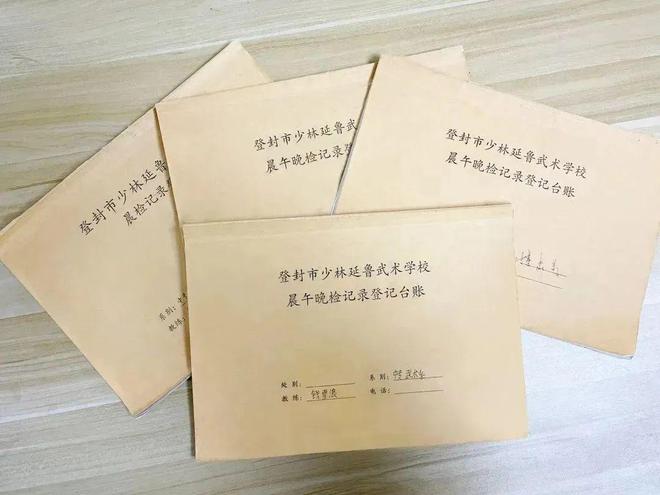 登封市少林延鲁武
晨检记录
系别：
教练：
登封市少林延鲁武
晨午晚检记录登
登封市少林延鲁武术学校
晨午晚检记录登记台账
登封市少林延鲁武术学校
晨午晚检记录登记台账
处别：
系别：
武术
教练：
电话：